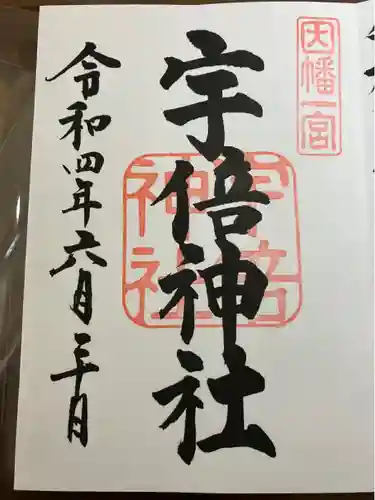 因幡一宮
宇倍神社
宇倍
神社
令和四年六月三十日